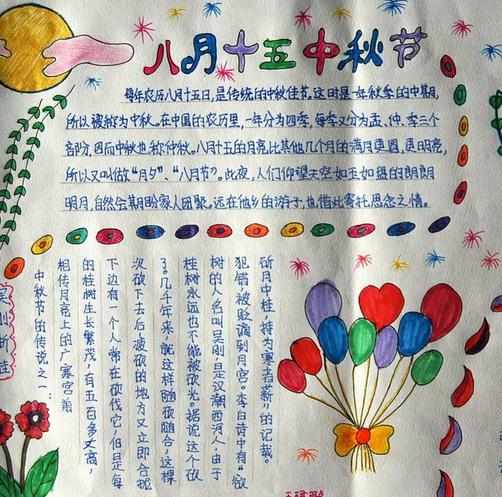 八月十五中秋节
每年农历八月十五日,是传统的中秋佳节。这时是一年秋季的中期,
所以被称为中秋。在中国的农历里,一年分为四季,每季又分为孟、仲、季三个
部分,因而中秋也称仲秋。八月十五的月亮比其他几个月的满月更圆,更明亮,
所以又叫做“月夕”、“八月节”。此夜,人们仰望天空如玉如盘的朗朗
明月,自然会期盼家人团聚。远在他乡的游子,也借此寄托思念之情。
中秋节的传说之一:
相传月亮上的广寒宫前
的桂树生长繁茂,有五百多丈高,
下边有一个人常在砍伐它,但是每
次砍下去后,被砍的地方又立即合拢
了。几千年来,就这样随砍随合,这棵
桂树永远也不能被砍光。据说这个砍
树的人名叫吴刚,是汉朝西河人,由于
犯错被贬谪到月宫。李白诗中有“欲
斫月中桂,持为寒者薪”的记载。